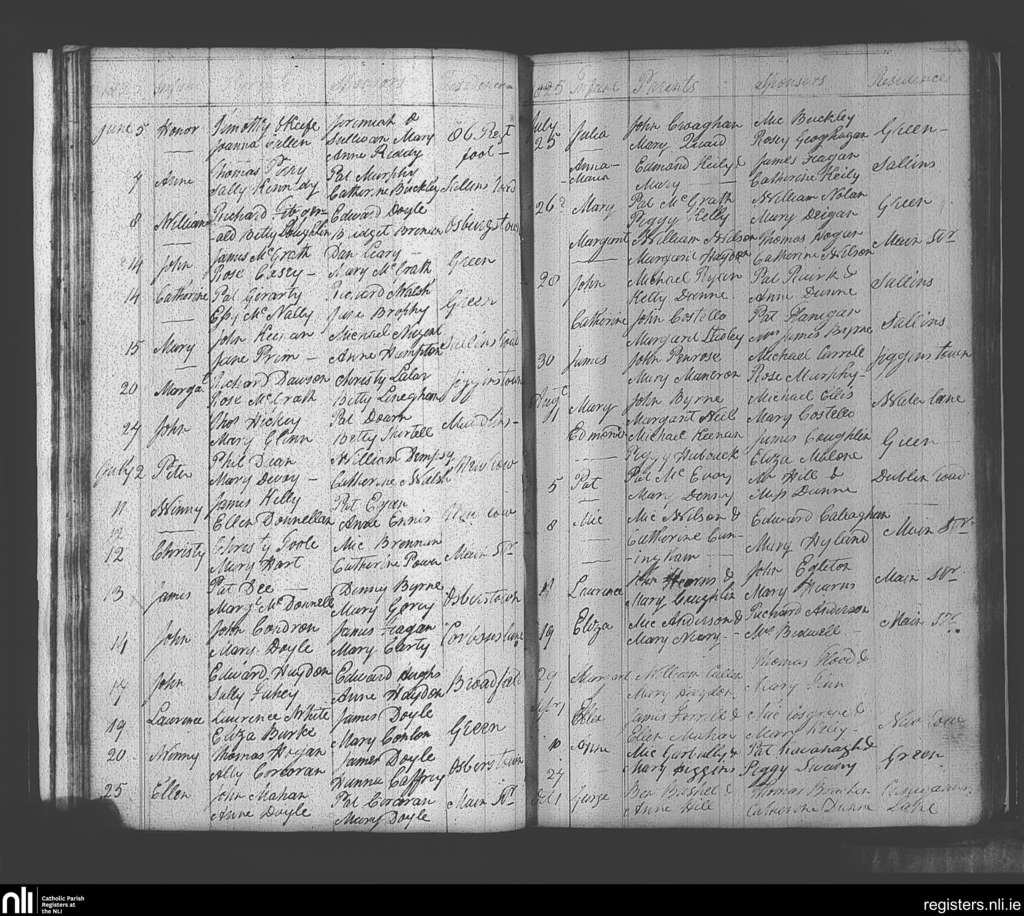 Infant Parents Sponsors Residence
June 5 Honor Timothy OKeife Jeremiah & 86 Regt
Joanna Cullen Sullivan Mary foot
Anne Reddy
Thomas
9 Anne Sally Kennedy Pat Murphy Sallins road
Catherine Buckley
8 William Richard Fitzger- Edward Doyle Osbirgstown
-ald Betty Coughlin Bridget Brenan
14 John James McGrath Dan Leary Green
Rose Casey Mary McGrath
14 Catherine Pat Gerarty Richard Walsh Green
McNally Jane Brophy
15 Mary John Keenan Michael Nugent Sallins road
Jane Prim Anne Hampton
20 Margat Richard Dawson Christy Lalar Jigginstown
Rose McGrath Betty Lineghan
24 John Thos Hickey Pat Doran Maudlins
Mary Glinn Betty
July 2 Peter Phil Dean William Dempsy New row
Mary Catherine Walsh
11 Winny James Kelly Pat Egan New row
Ellen Donnellan Anne Ennis
12
12 Christy Christy Toole Mic Brennan Main St
Mary Hart Catherine Power
13 James Pat Dee Denny Byrne Osberstown
Margt McDonnell Mary Gorey
14 John John Condron James Fagan Corbans lane
Mary Doyle Mary Carty
17 John Edward Haydon Edward Hughs Broadfield
Sally Anne Haydon
19 Laurence Laurence White James Doyle Green
Eliza Burke Mary Conlon
20 Winny Thomas Hogan James Doyle Osberstown
Ally Corcoran Hanna Caffrey
25 Ellen John Mahan Pat Corcoran Main St
Anne Doyle Mary Doyle
1825 Infant Parents Sponsors Residence
July
25 Julia John Croaghan Mic Buckley Green
Mary Rosey Geoghagan
Anna- Edmond Keily & James Fagan Sallins
Maria Mary Catherine Keily
26 Mary Pat McGrath William Nolan Green
Peggy Kelly Mary Deigan
Margaret William Wilson Thomas Hogan Main Str
Margaret Haydon Catherine Wilson
28 John Michael Ryan Pat Rourke & Sallins
Kelly Dunne Anne Dunne
Catherine John Costello Pat Flanegan Sallins
Margaret Mrs James Byrne
30 James John Penrose Michael Carroll Jigginstown
Mary Rose Murphy
Augt
11 Mary John Byrne Michael Ellis Water lane
Margaret Neil Mary Costello
Edmond Michael Keenan James Coughlin Green
Peggy Eliza Malone
5 Pat Pat McEvoy Mr Hill & Dublin road
Mary Denny Miss Dunne
8 Mic Mic Wilson & Edward Caleaghan Main Str
Catherine Cun-
ingham Mary Hyland
11 Laurence John Hearns & John Egleton Main Str
Mary Coughlin Mary Hearns
19 Eliza Mic Anderson & Richard Anderson Main Str
Mary Neary Mrs Bidwell
29 Margaret William Thomas Flood &
Mary Haydon Mary
1 Eliza James Farrell & Mic Cosgrove & New row
Ellen Mary
10 Anne Mic & Pat Kavanagh & Green
Mary Higgins Peggy Sweeny
24
Oct 1 George Ben Thomas
Anne Hill Catherine Dunne
nli
Catholic Parish
Registers at
the NLI
registers.nli.ie